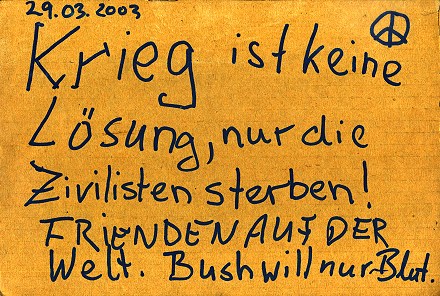 29.03.2003
Krieg ist keine
Lösung, nur die
Zivilisten sterben!
FRIENDEN AUF DER
Welt. Bush will nur Blut.